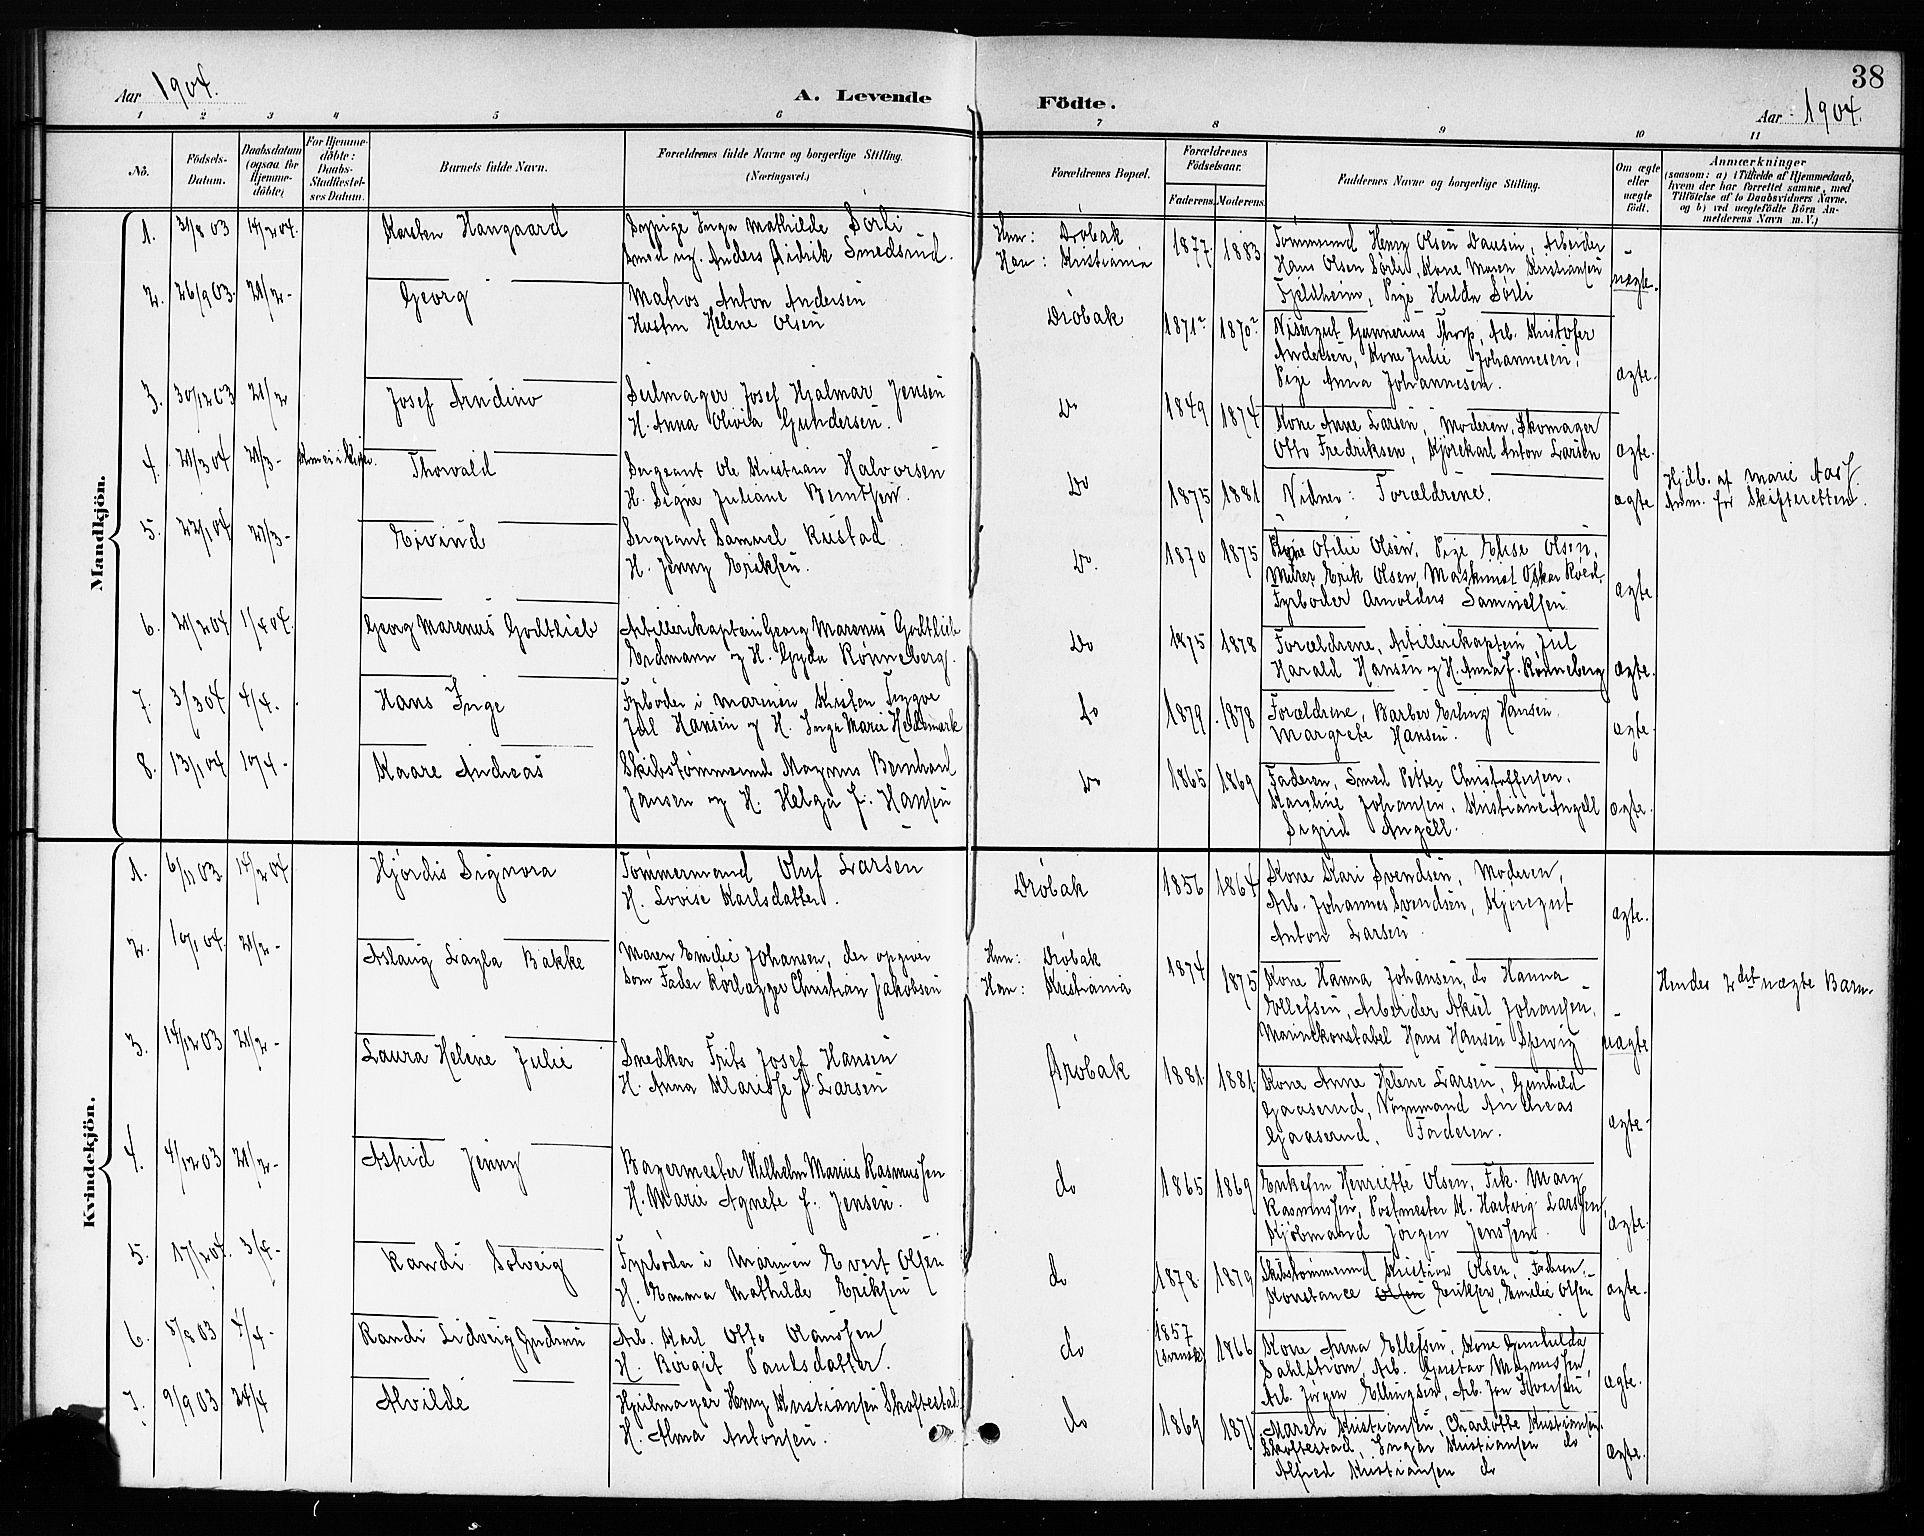 38
Aar 1904.
A. Levende Födte.
Aar 1904.
1 2 3 4 5 6 7 8 9 10 11
No.
Födsels-Datum.
Daabsdatum (ogsaa for Hjemme-döbte)
For Hjemme-döbte: Daabs-Stadfæstel-ses Datum.
Barnets fulde Navn.
Forældrenes fulde Navne og borgerlige Stilling. (Næringsvei.)
Forældrenes Bopæl.
Forældrenes Födselsaar.
Faderens Moderens
Faddernes Navne og borgerlige Stilling.
Om ægte eller uægte födt.
Anmærkninger
(saasom: a) i Tilfælde af Hjemmedaab,
hvem der har forrettet samme, med
Tilföielse af to Daabsvidners Navne.
og b) ved uægtefödte Börn An-
melderens Navn m. V.)
Mandkjön.
1. 31/8 03 14/2 04. Karsten Haugaard
Inga Mathilde Sørli
Smed ug. Anders Didrik Smedsrud.
Hun: Drøbak
Han: Kristiania
1877. 1883
Tømmermd Henry Olsen Arbeider
Hans Olsen Sørli, Kone Maren Kristiansen
Fjeldheim, Pige Hulda Sørli
uægte.
2. 26/9 03. 21/2 - Georg
Anton Andersen
Hustru Helene Olsen
Drøbak
1871 1870
Visergut Gunnerius Thorp, Arb. Kristofer
Andersen, Kone Julie Johannesen,
Pige Anna Johannesen.
ægte.
3. 30/12 03 21/2 Josef Arndino
Seilmager Josef Hjalmar Jensen
H. Anna Olivia Gundersen.
Do
1849 1874
Kone Anne Larsen, Moderen, Skomager
Otto Fredriksen, Kjørekarl Anton Larsen
ægte.
4. 21/3 04 21/3 - Thorvald
Sergeant Ole Kristian Halvorsen
H. Signe Juliane Berntsen.
Do
1875 1881
Vidner: Forældrene.
ægte
Hjdb. af Marie
Anm. for Skifteretten.
5. 22/1 04 27/3 - Eivind
Sergeant Samuel Rustad
H. Jenny Eriksen.
Do.
1870 1875
Kone Otilie Olsen, Pige Elise Olsen,
Murer Erik Olsen, Maskinist Oskar Roed,
Fyrbøder Arnoldus Samuelsen
ægte
6. 21/2 04 1/4 04. Georg Marenus Godtlieb
Artillerikaptein Georg Marenus Godtlieb
Erdmann og H. Gyda Rønneberg.
Do
1875 1878
Forældrene, Artillerikaptein Juel
Harald Hansen og H. Anna f. Rønneberg
ægte.
7. 3/3 04 4/4. Hans Inge
Fyrbøder i Marinen Kristen Trygve
Juel Hansen og H. Inga Marie Hedemark
Do
1879. 1878
Forældrene, Barber Erling Hansen,
Margrete Hansen.
ægte.
8. 13/1 04 10/4 - Kaare Andreas
Skibstømmermd Magnus Bernhard
Jansen og H. Helga f. Hansen
Do
1865 1869
Faderen, Smed Petter Christoffersen,
Karoline Johansen, Kristiane Angell
Sigrid Angell.
ægte.
Kvindekjön.
1. 6/11 03. 14/2 04 Hjørdis Signora
Tømmermand Oluf Larsen
H. Lovise Karlsdatter.
Drøbak
1856 1864
Kone Kari Svendsen, Moderen,
Arb. Johannes Svendsen, Kjøregut
Anton Larsen
ægte.
2. 10/1 04. 21/2 - Aslaug Layla Bakke
Maren Emilie Johansen, der opgiver
som Fader Rørlægger Christian Jakobsen
Hun: Drøbak
Han: Kristiania
1874 1875
Kone Hanna Johansen, do Hanna
Ellefsen, Arbeider Aksel Johansen,
Marinekonstabel Hans Hansen
uægte
Hendes 2det uægte Barn.
3. 14/12 03 21/2 - Laura Helene Julie
Snedker Frits Josef Hansen
H. Anna Klarisse f. Larsen
Drøbak
1881. 1881.
Kone Anne Helene Larsen, Gunhild
Gaaserud, Vognmand Andreas
Gaaserud, Faderen.
ægte -
4. 4/12 03 21/2 - Astrid Jenny
Bagermester Wilhelm Marius Rasmussen
H. Marie Agnete f. Jensen.
do
1865 1869
Enkefru Henriette Olsen, Frk. Mary
Rasmussen, Postmester M. Hartvig Larssen,
Kjøbmand Jørgen Jenssen.
ægte.
5. 17/2 04. 3/4 - Randi Solveig
Fyrbøder i Marinen Evert Olsen
H. Emma Mathilde Eriksen
do
1878. 1879
Skibstømmermd Kristian Olsen, Faderen,
Konstance Olsen Eriksen, Emilie Olsen
ægte.
6. 5/8 03 4/4 - Randi Lidveig
Arb. Karl Otto Olaussen
H. Birgit Paulsdatter.
do
1857 (svensk) 1866
Kone Anna Ellefsen, Kone Gunhilda
Dahlstrøm, Arb. Gustav Magnussen,
Arb. Jørgen Ellingsen, Arb. Jon Iversen
ægte.
7. 9/9 03 24/4 Alvilde
Hjulmager Henry Kristiansen Skoftestad
H. Alma Antonsen.
do
1869 1871
Maren Kristiansen, Charlotte Kristiansen
Skoftestad, Ingar Kristiansen do
Alfred Kristiansen do
ægte.